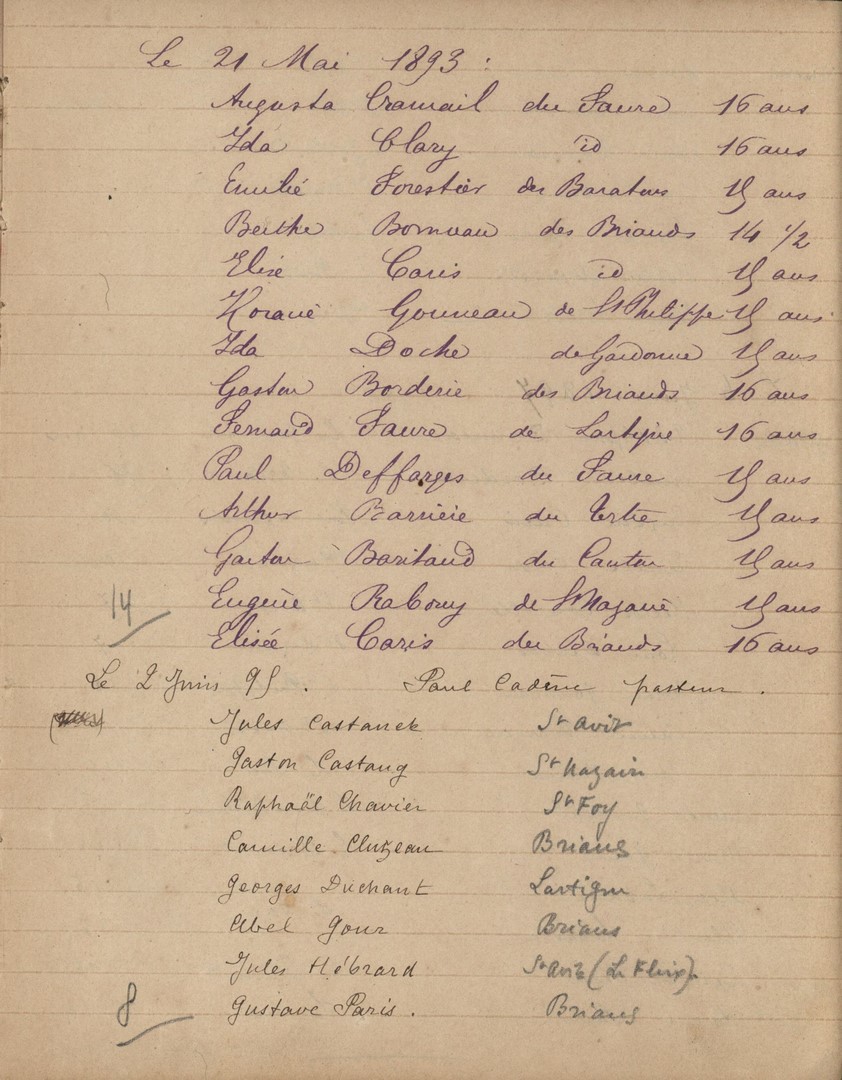 Le 21 Mai 1893 :
Augusta Cramail du Faure 16 ans
Ida Clary id 16 ans
Emilié Forestier des Baratous 15 ans
Berthe Bonneau des Briands 14 1/2
Elise Caris id 15 ans
Horavie Gonneau de St Philippe 15 ans
Ida Doche de Gardonne 15 ans
Gaston Borderie des Briands 16 ans
Fernand Faure de Lartigue 16 ans
Paul Deffarges du Faure 15 ans
Arthur Barrière du Tertre 15 ans
Gaston Baritaud du Canton 15 ans
Eugène Rabouy de St Nazaire 15 ans
14
Elisée Caris des Briands 16 ans
Le 2 Juin 95. Paul Cadène pasteur.
Jules Castanek St Avit
Gaston Castang St Nazair
Raphaël Chavier St Foy
Camille Cluzeau Brians
Georges Duchant Lartigue
Abel Gour Brians
Jules Hébrard St Avit (Le Fleix).
8 Gustave Paris. Brians